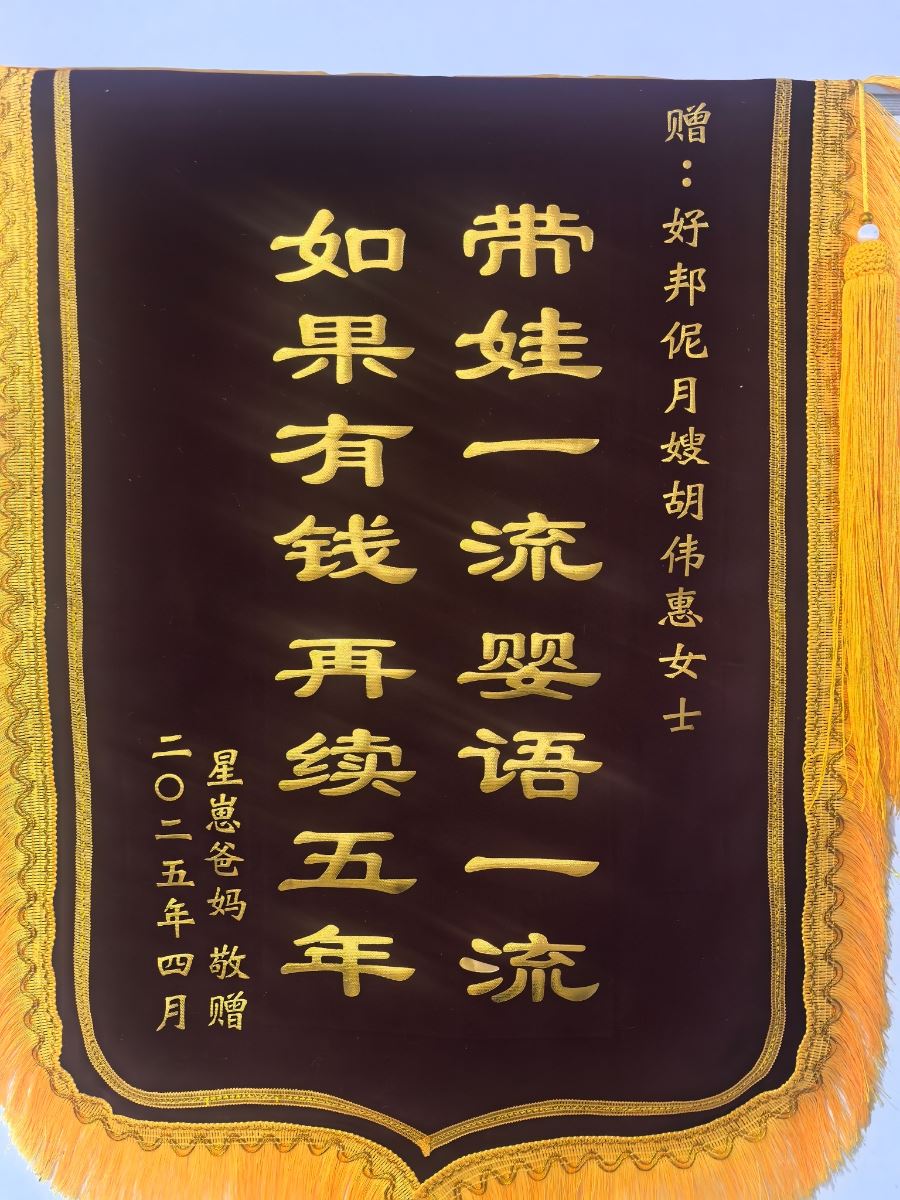 赠：好邦伲月嫂胡伟惠女士
带娃一流婴语一流
如果有钱再续五年
星崽爸妈敬赠
二〇二五年四月